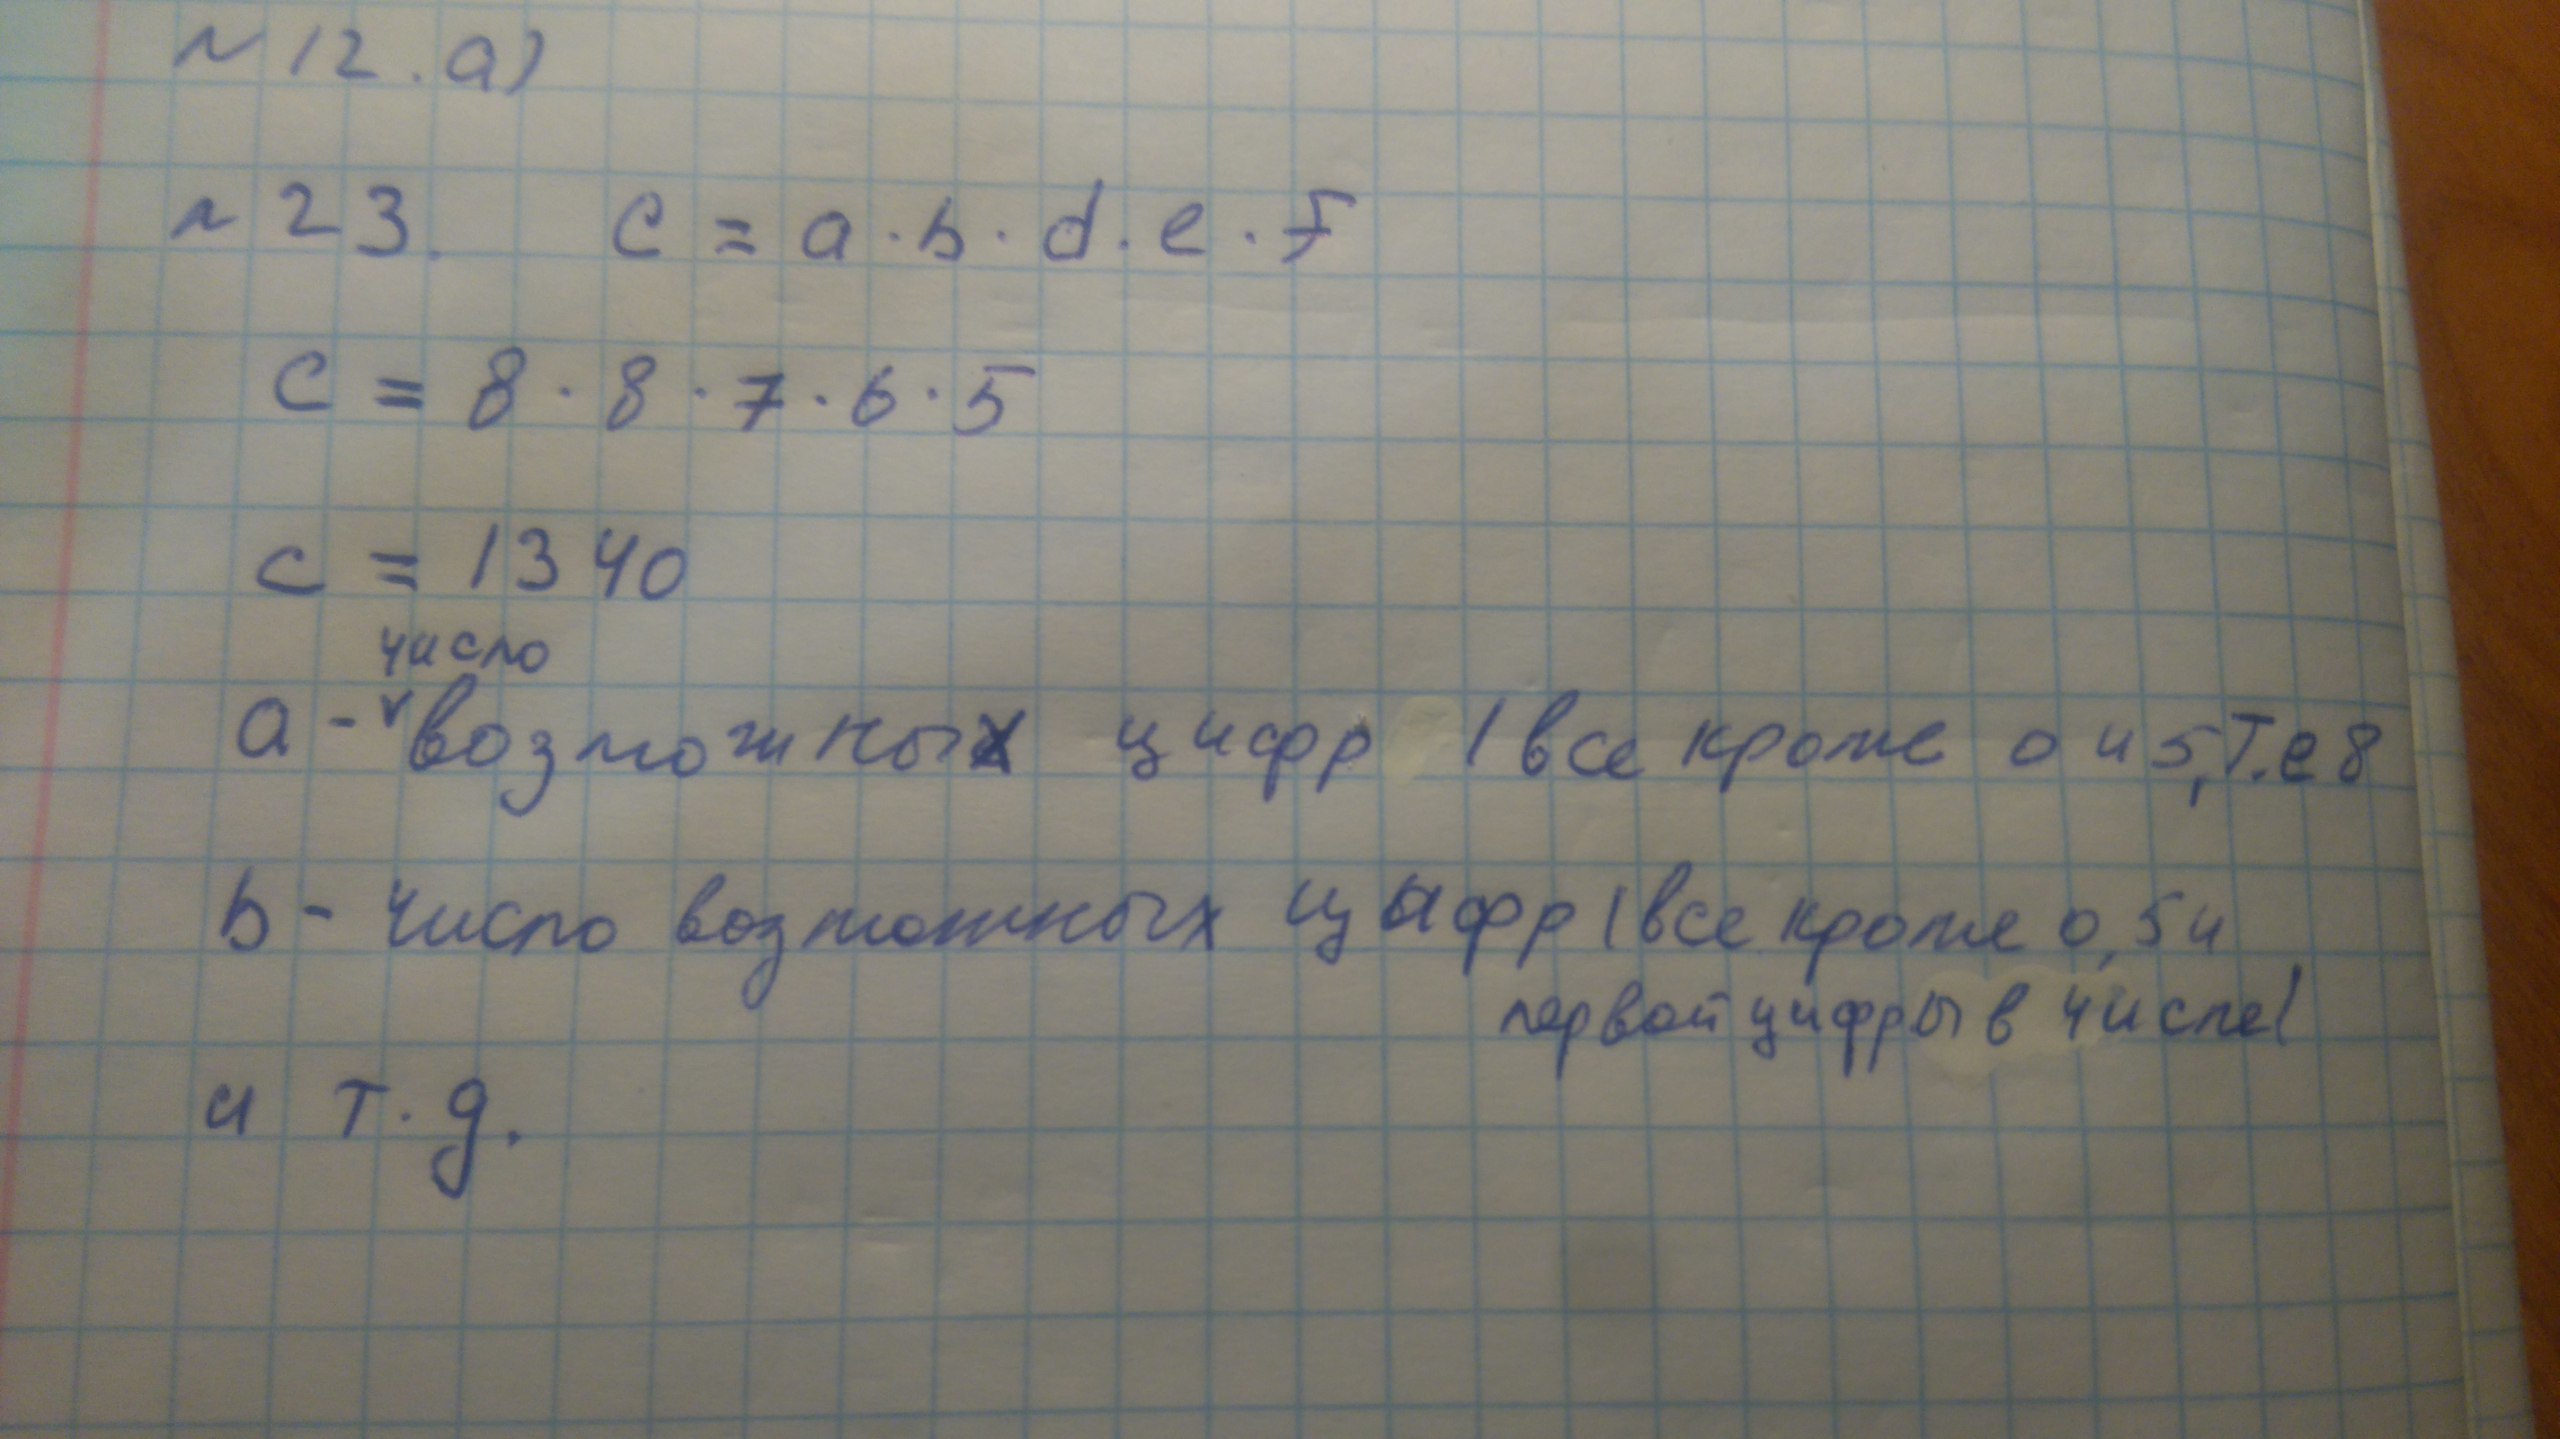 ~ 12. а)
~ 23. c = a · b · d · e · F
c = 8 · 8 · 7 · 6 · 5
c = 1340
число
a - ᵛвозможных цифр (все кроме 0 и 5, т.е 8
b - число возможных цифр (все кроме 0, 5 и
первой цифры в числе(
и т. д.